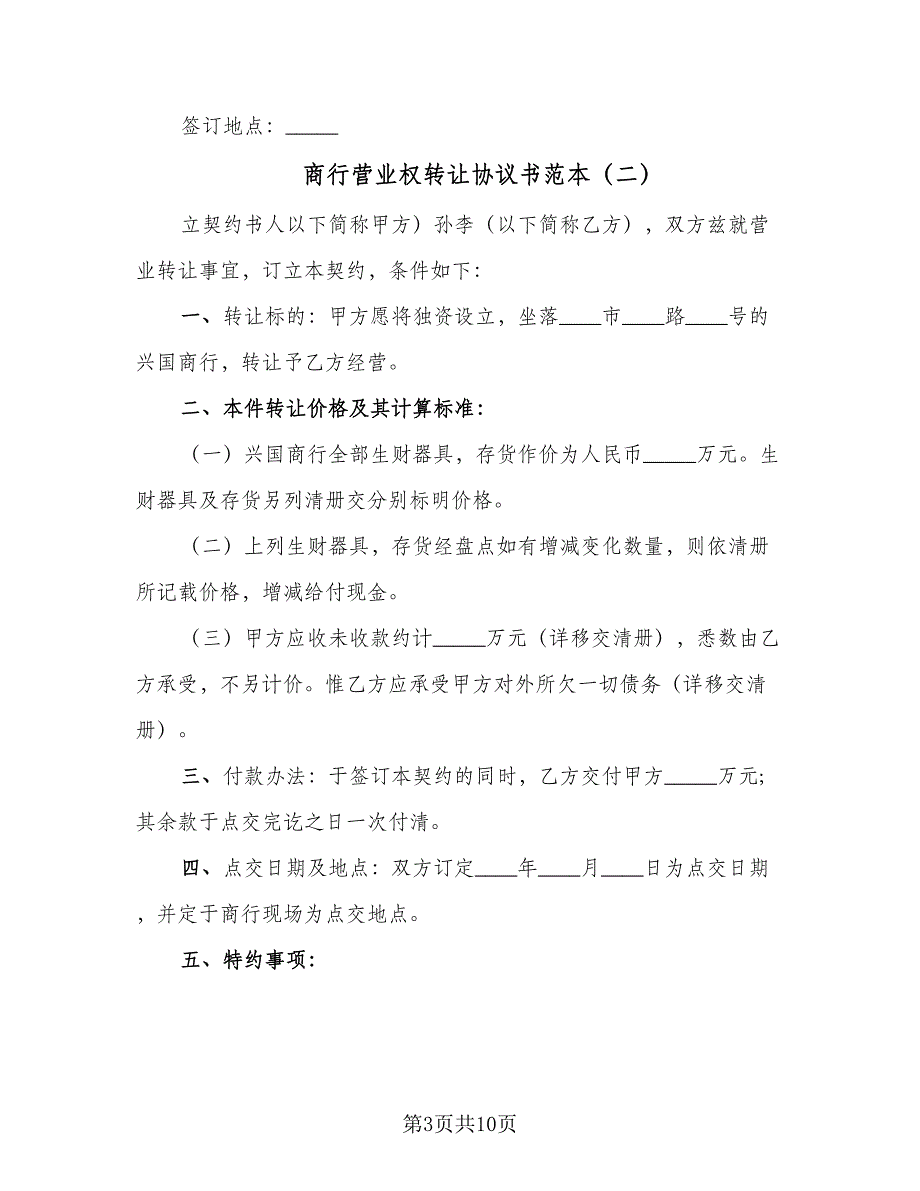 签订地点：_____
商行营业权转让协议书范本（二）
立契约书人以下简称甲方）孙李（以下简称乙方），双方兹就营
业转让事宜，订立本契约，条件如下：
一、转让标的：甲方愿将独资设立，坐落____市____路____号的
兴国商行，转让予乙方经营。
二、本件转让价格及其计算标准：
（一）兴国商行全部生财器具，存货作价为人民币_____万元。生
财器具及存货另列清册交分别标明价格。
（二）上列生财器具，存货经盘点如有增减变化数量，则依清册
所记载价格，增减给付现金。
（三）甲方应收未收款约计_____万元（详移交清册），悉数由乙
方承受，不另计价。惟乙方应承受甲方对外所欠一切债务（详移交清
册）。
三、付款办法：于签订本契约的同时，乙方交付甲方_____万元;
其余款于点交完讫之日一次付清。
四、点交日期及地点：双方订定____年____月____日为点交日期
，并定于商行现场为点交地点。
五、特约事项：
第3页共10页